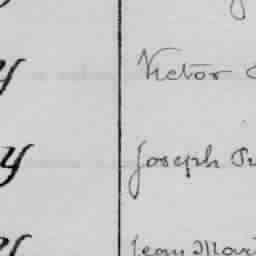 y Victor
y Joseph
Jean Mar